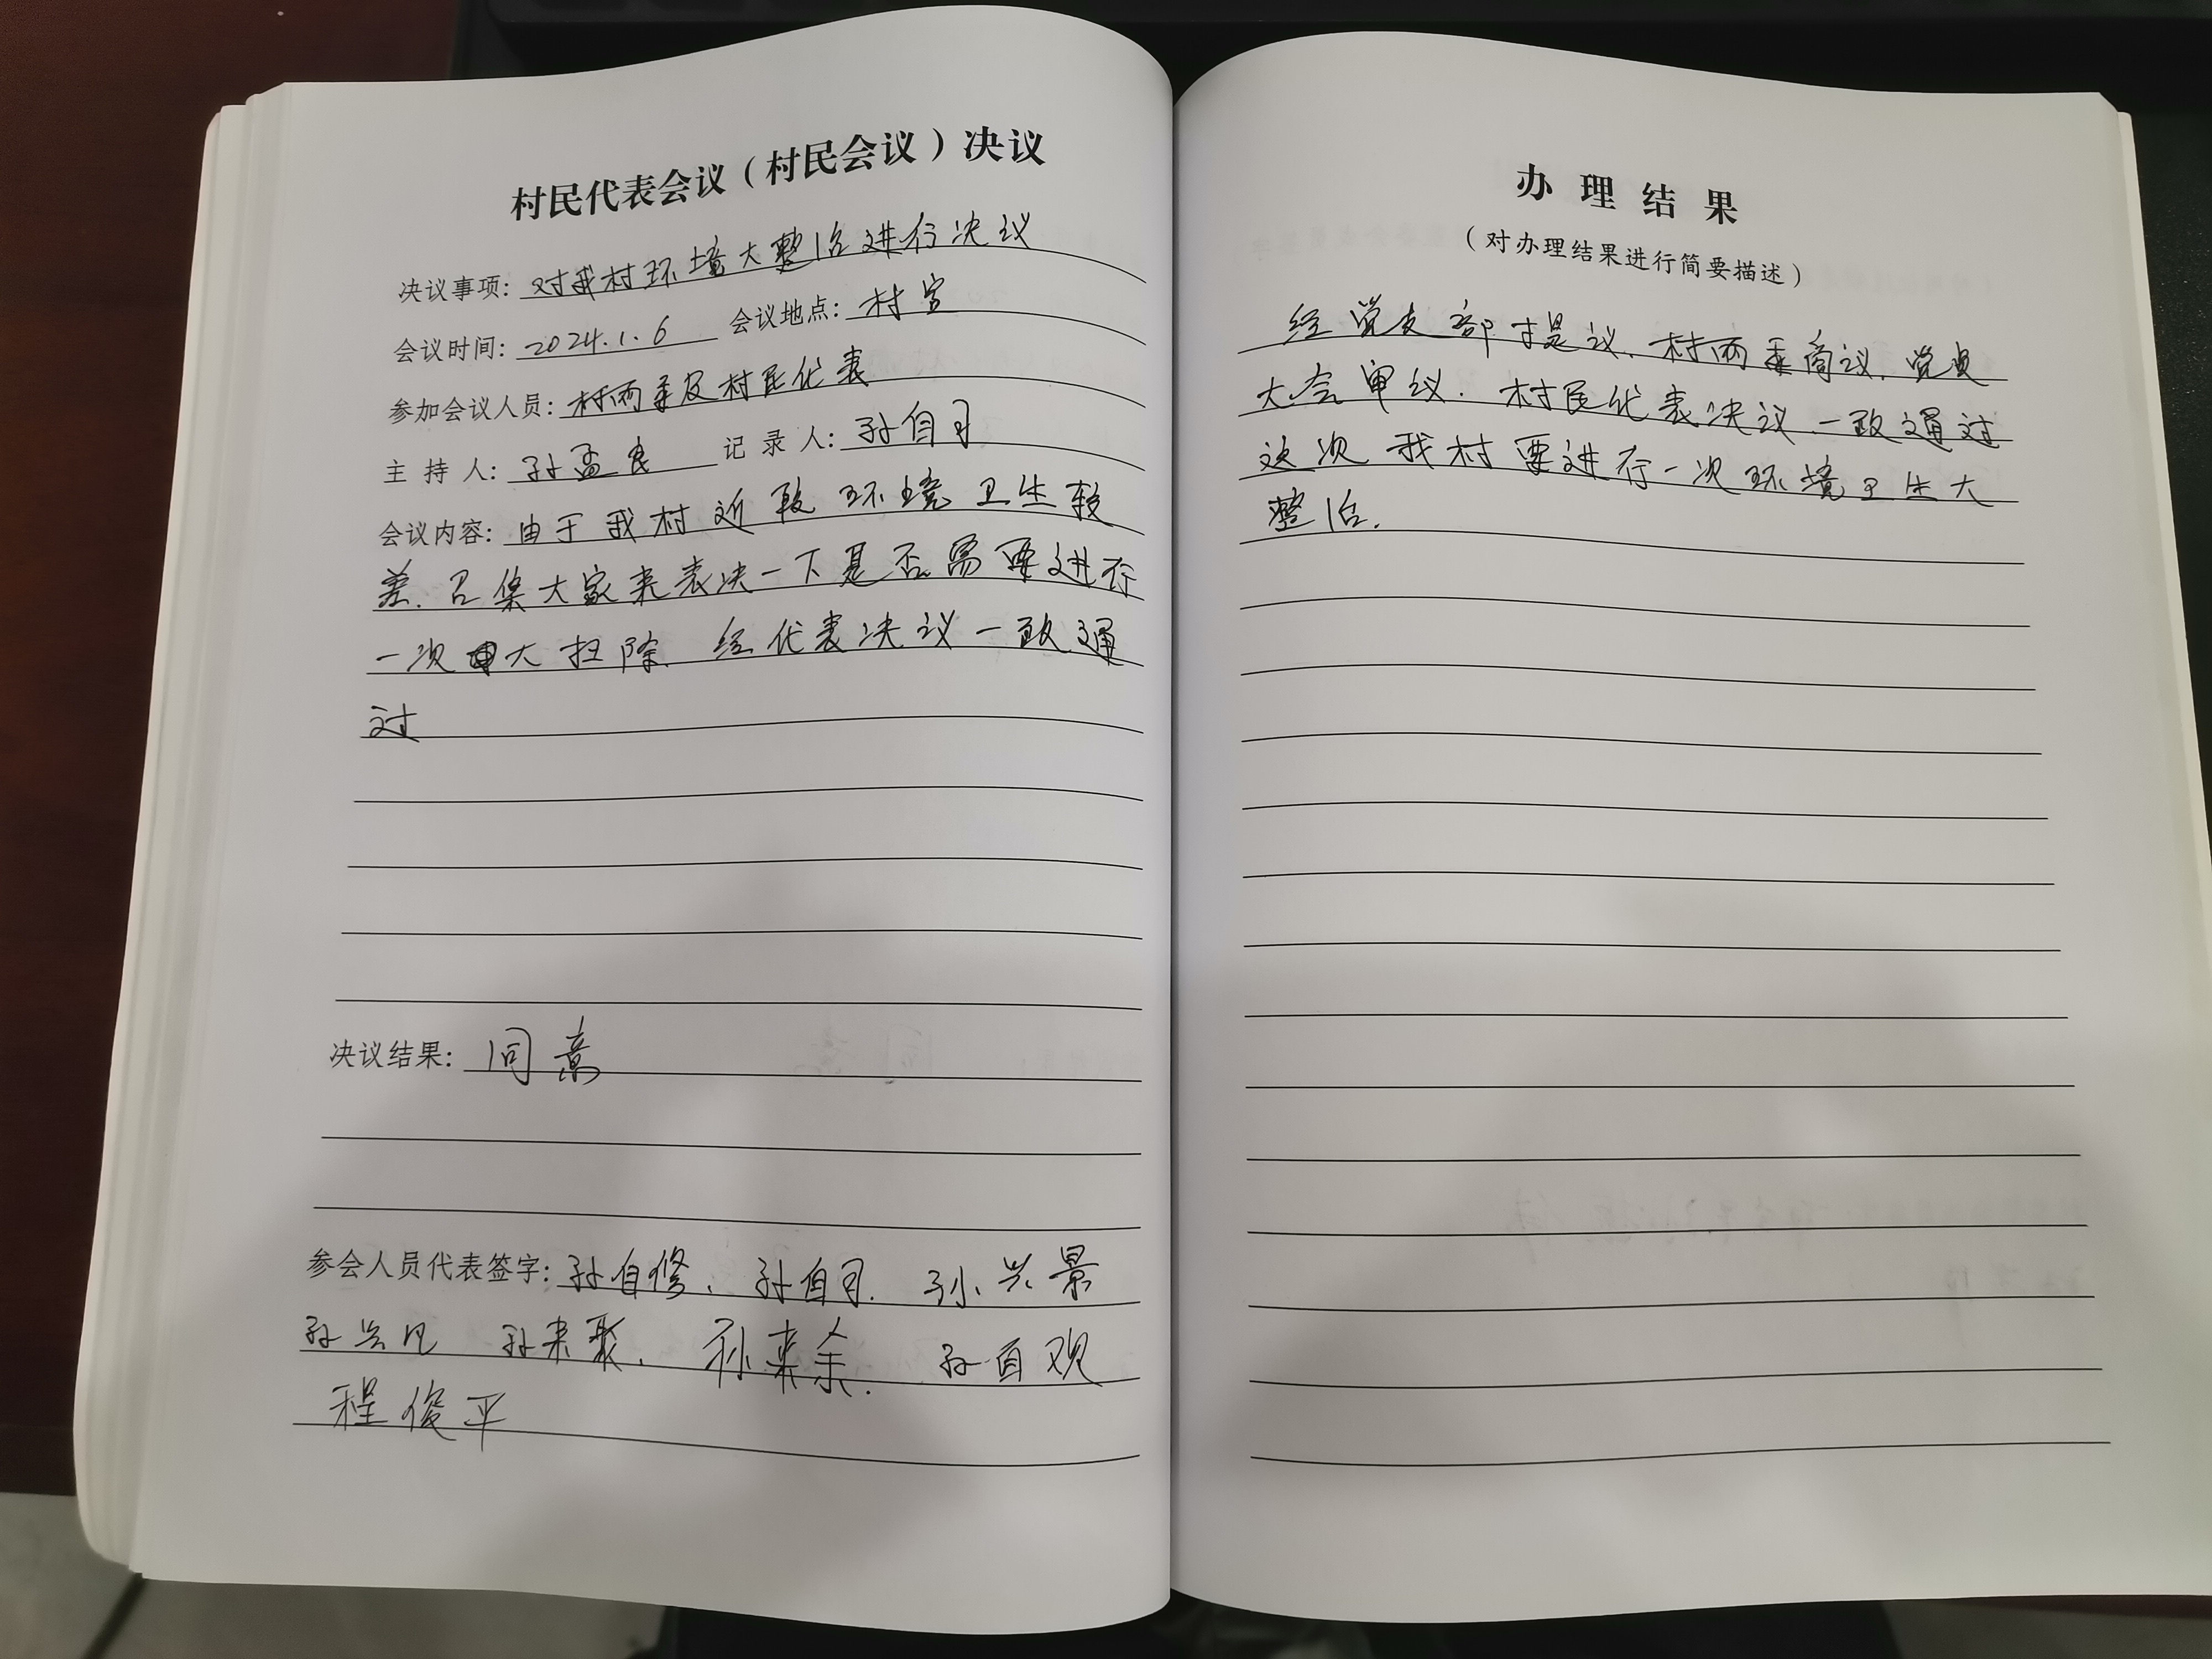 村民代表会议（村民会议）决议
决议事项：对我村环境大整治进行决议
会议时间：2024.1.6 会议地点：村室
参加会议人员：村两委及村民代表
主持人：孙孟良 记录人：孙自习
会议内容：由于我村近段环境卫生较
差.召集大家来表决一下是否需要进行
一次大扫除.经代表决议一致通
过
决议结果：同意
参会人员代表签字：孙自修、孙自习.孙兴景
孙兴 孙来聚、孙来余.孙自观
程俊平
办理结果
（对办理结果进行简要描述）
经党支部提议.村两委商议.党员
大会审议.村民代表决议一致通过
这次我村要进行一次环境卫生大
整治.